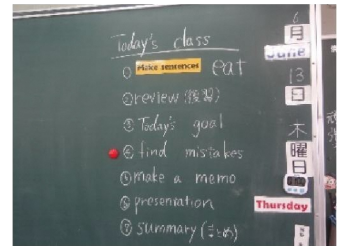 Today's class
① Make sentences eat
② review (復習)
③ Today's goal
④ find mistakes
⑤ make a memo
⑥ presentation
⑦ summary (まとめ)
6
月
June
13
日
木
曜
日
Thursday